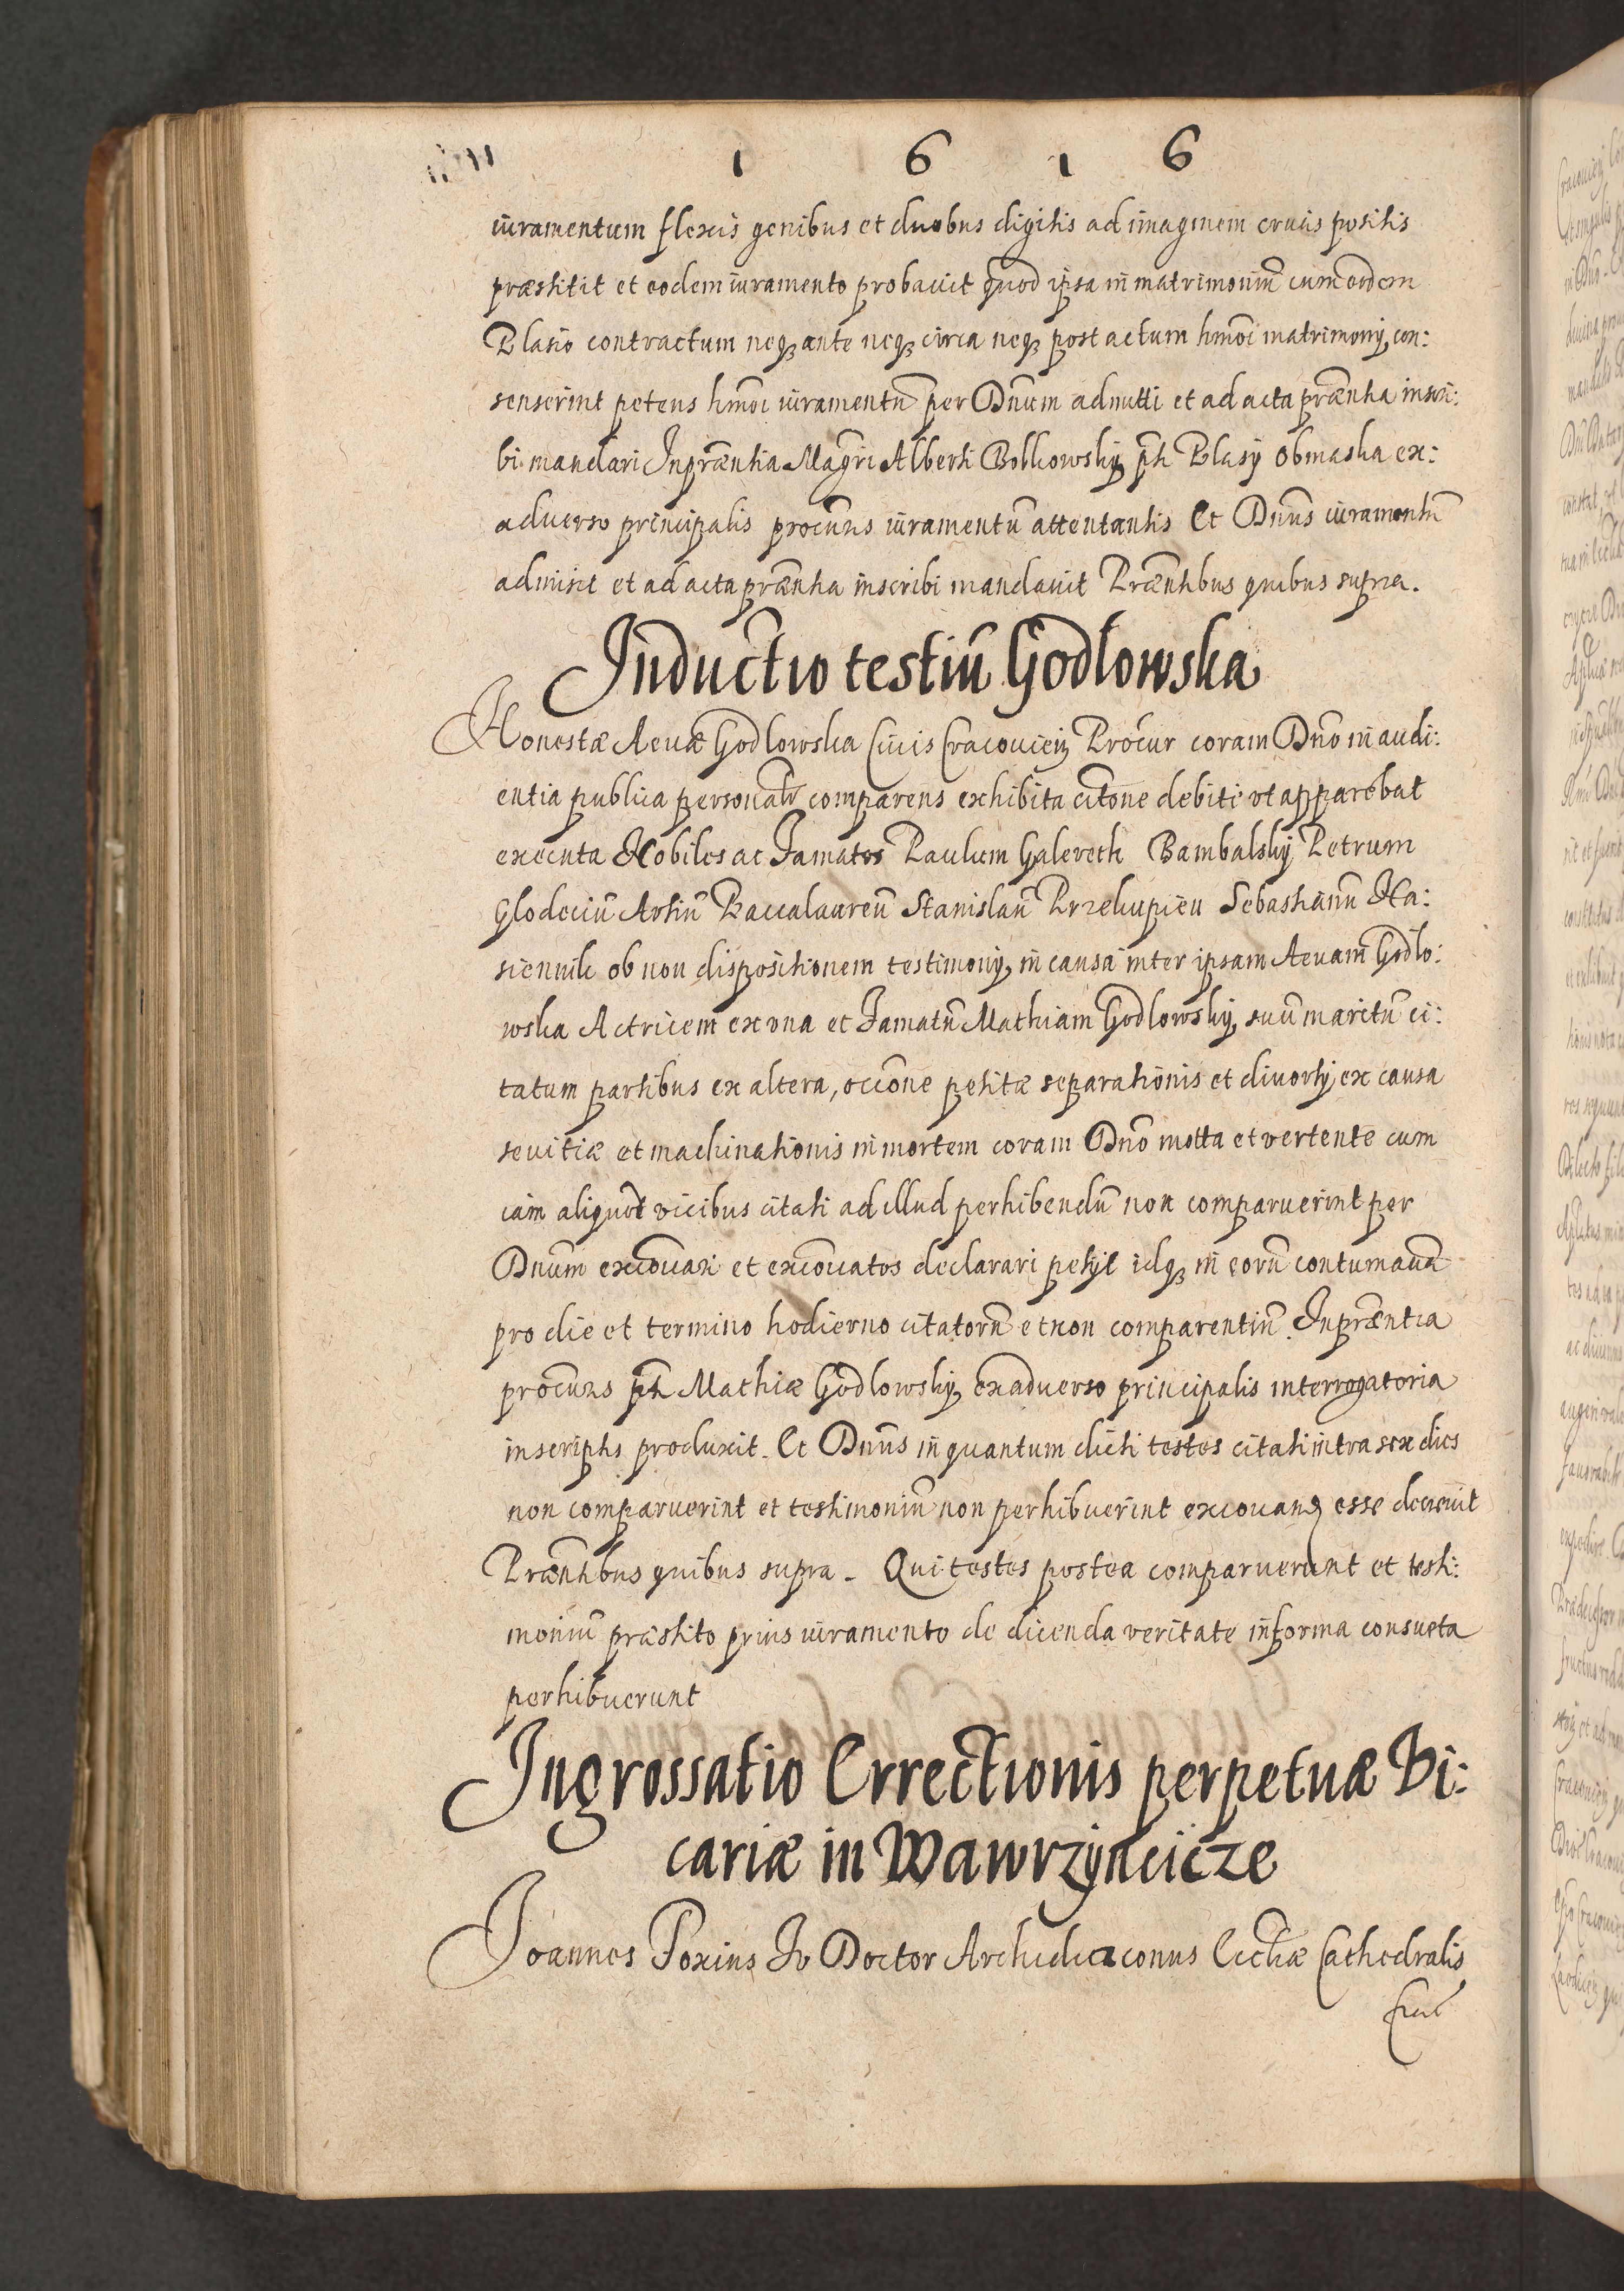 1 6 1 6
iuramentum flexis genibus et duobus digitis ad imaginem crucis positis
præstitit et eodem iuramento probauit quod ipsa in matrimoniū cum eodem
Blasio contractum neqȝ ante neqȝ circa neqȝ post actum hmōi matrimonij con:
senserint petens hmōi iuramentū per Dnūm admitti et ad acta præntia inscri:
bi mandari Inpræntia Magri Alberti Bolkowskij pti Blasij Obmaska ex:
aduerso principalis procuris iuramentū attentantis Et Dnūs iuramentū
admisit et ad acta præntia inscribi mandauit Præntibus quibus supra.
Inductio testiū Godlowska
Honestæ Aeuæ Godlowska Ciuis Cracouien̄ Procur coram Dnō in audi:
entia publica personalr comparens exhibita citōne debite vt apparebat
executa Nobiles ac Famatos Paulum Galeveck Bambalskij Petrum
Glodeciū Artiū Baccalaureū Stanislaū Przekupien Sebastianū Na:
siennik ob non dispositionem testimonij in causa inter ipsam Aeuam Godlo:
wska Actricem ex vna et Famatū Mathiam Godlowskij suū maritū ci:
tatum partibus ex altera, occōne petitæ separationis et diuortij ex causa
seuitiæ et machinationis in mortem coram Dnō motta et vertente cum
iam aliquot vicibus citati ad illud perhibendū non comparuerint per
Dnūm excōicari et excōicatos declarari petijt idqȝ in eorū contumaciā
pro die et termino hodierno citatorū et non comparentiū. Inpræntia
procuris pti Mathiæ Godlowskij exaduerso principalis interrogatoria
in scriptis produxit. Et Dnūs in quantum dicti testes citati intra sex dies
non comparuerint et testimoniū non perhibuerint excōicandȝ esse decreuit
Præntibus quibus supra. Qui testes postea comparuerunt et testi:
moniū præstito prius iuramento de dicenda veritate in forma consueta
perhibuerunt
Ingrossatio Errectionis perpetuæ Vi:
cariæ in Wawrzyncicze
Joannes Foxius Jv Doctor Archidiaconus Ecclīæ Cathedralis
Crac